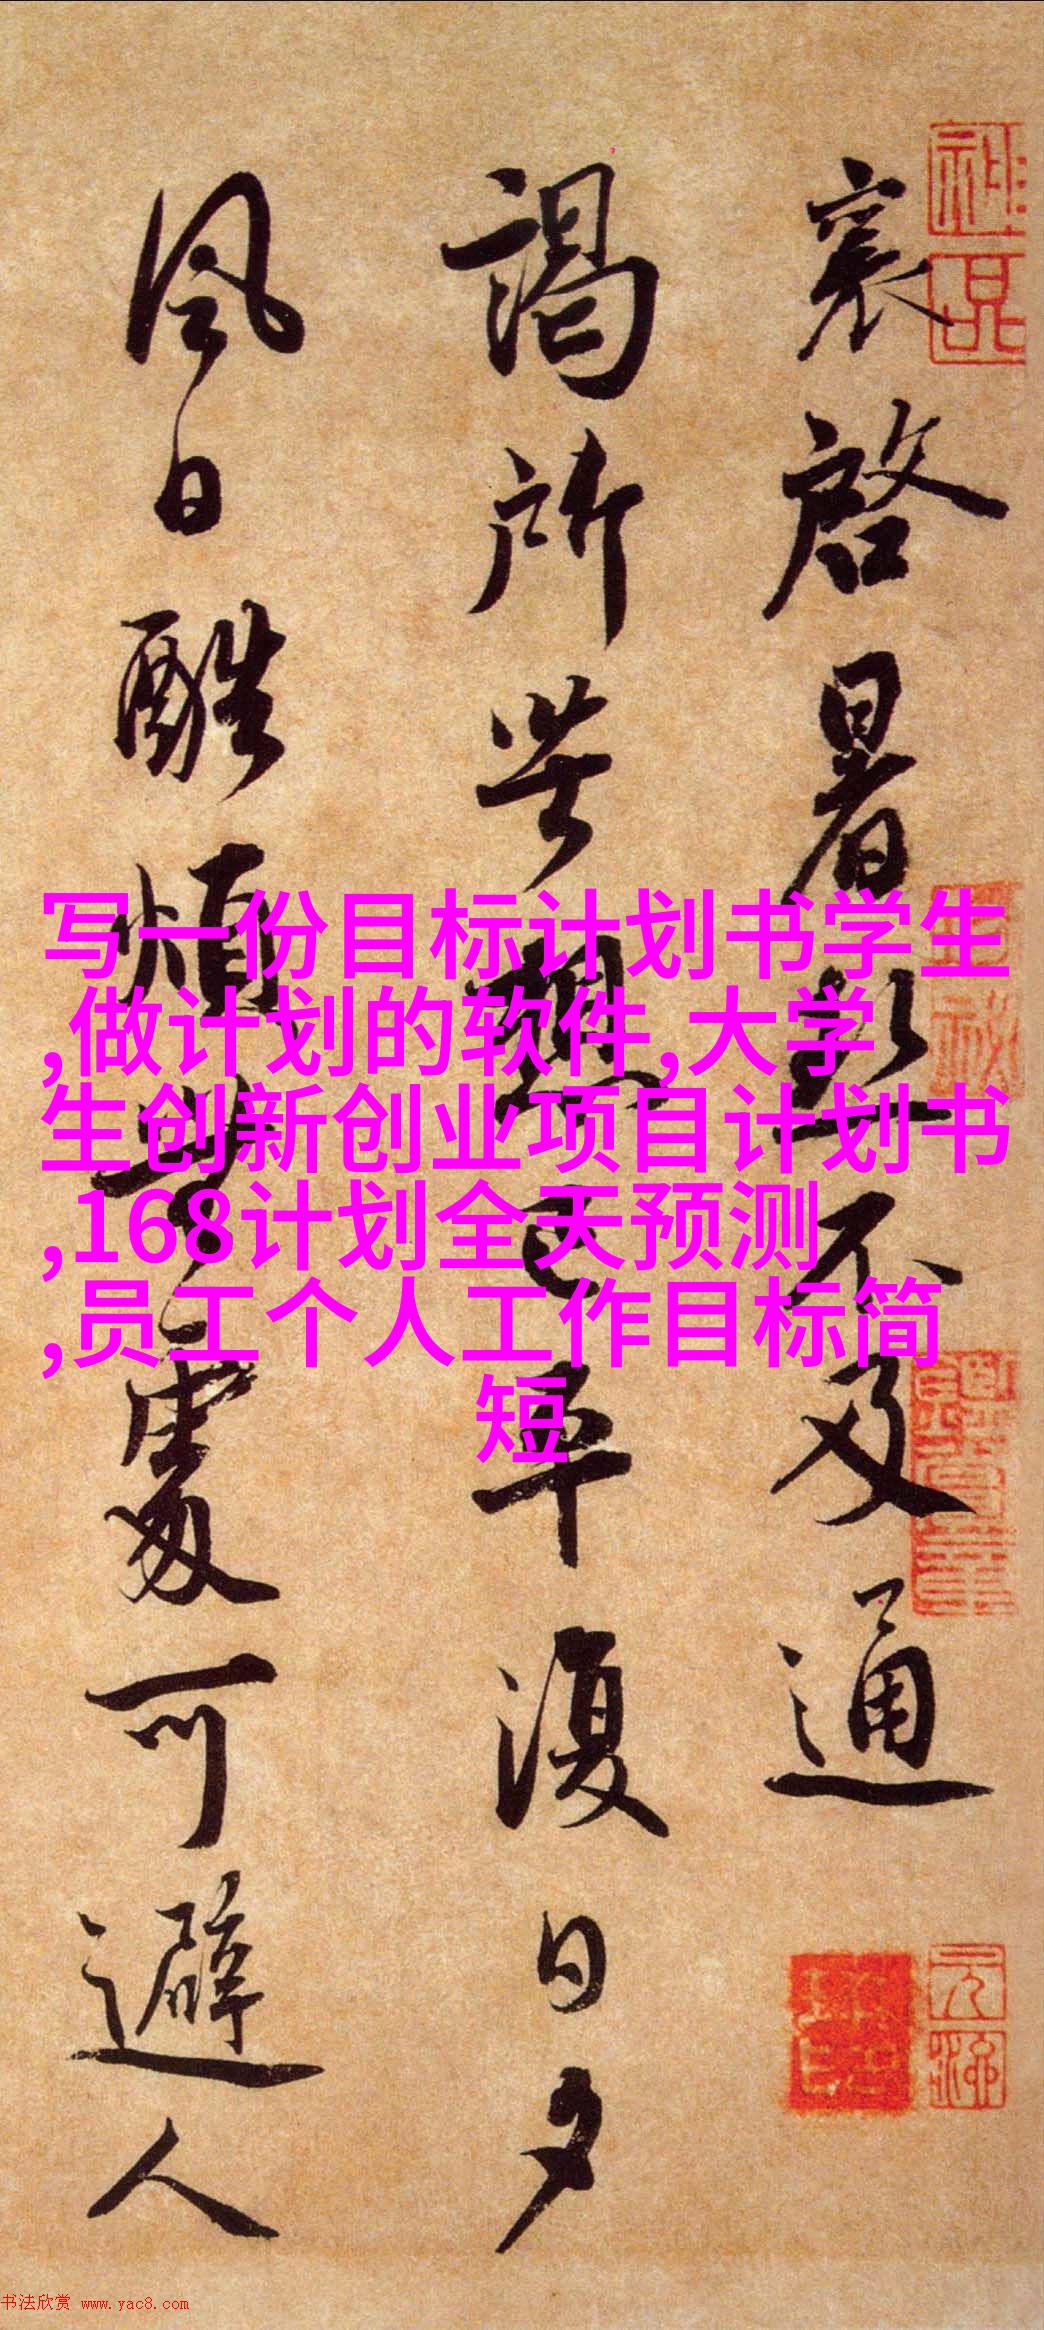 襄启暑热不及通
谒所苦想已平复日夕
风日酷烦无处可避人
写一份目标计划书学生
,做计划的软件,大学
生创新创业项目计划书
,168计划全天预测
,员工个人工作目标简
短
书法欣赏 www.yac8.com